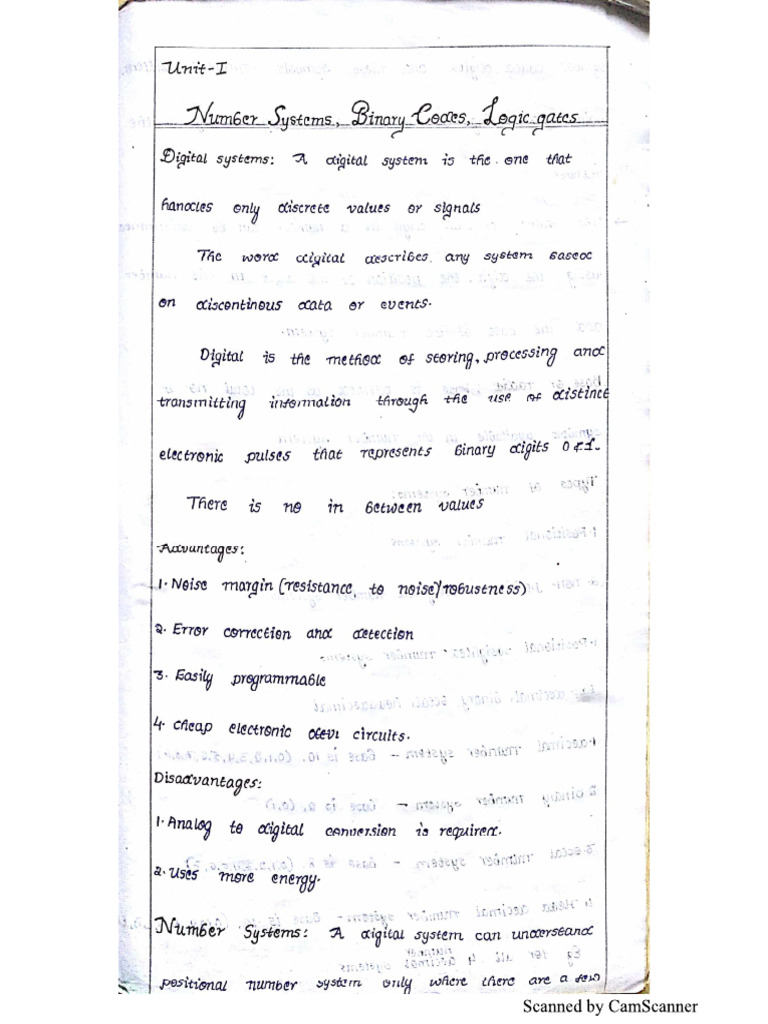 Unit-I
Number Systems, Binary Codes, Logic gates
Digital systems: A digital system is the one that
handles only discrete values or signals
The word digital describes any system based
on discontinous data or events.
Digital is the method of storing, processing and
transmitting information through the use of distinct
electronic pulses that represents binary digits 0 & 1.
There is no in between values
Advantages:
1. Noise margin (resistance to noise/robustness)
2. Error correction and detection
3. Easily programmable
4. cheap electronic circuits.
Disadvantages:
1. Analog to digital conversion is required.
2. uses more energy.
Number Systems: A digital system can understand
positional number system only where there are a few
Scanned by CamScanner